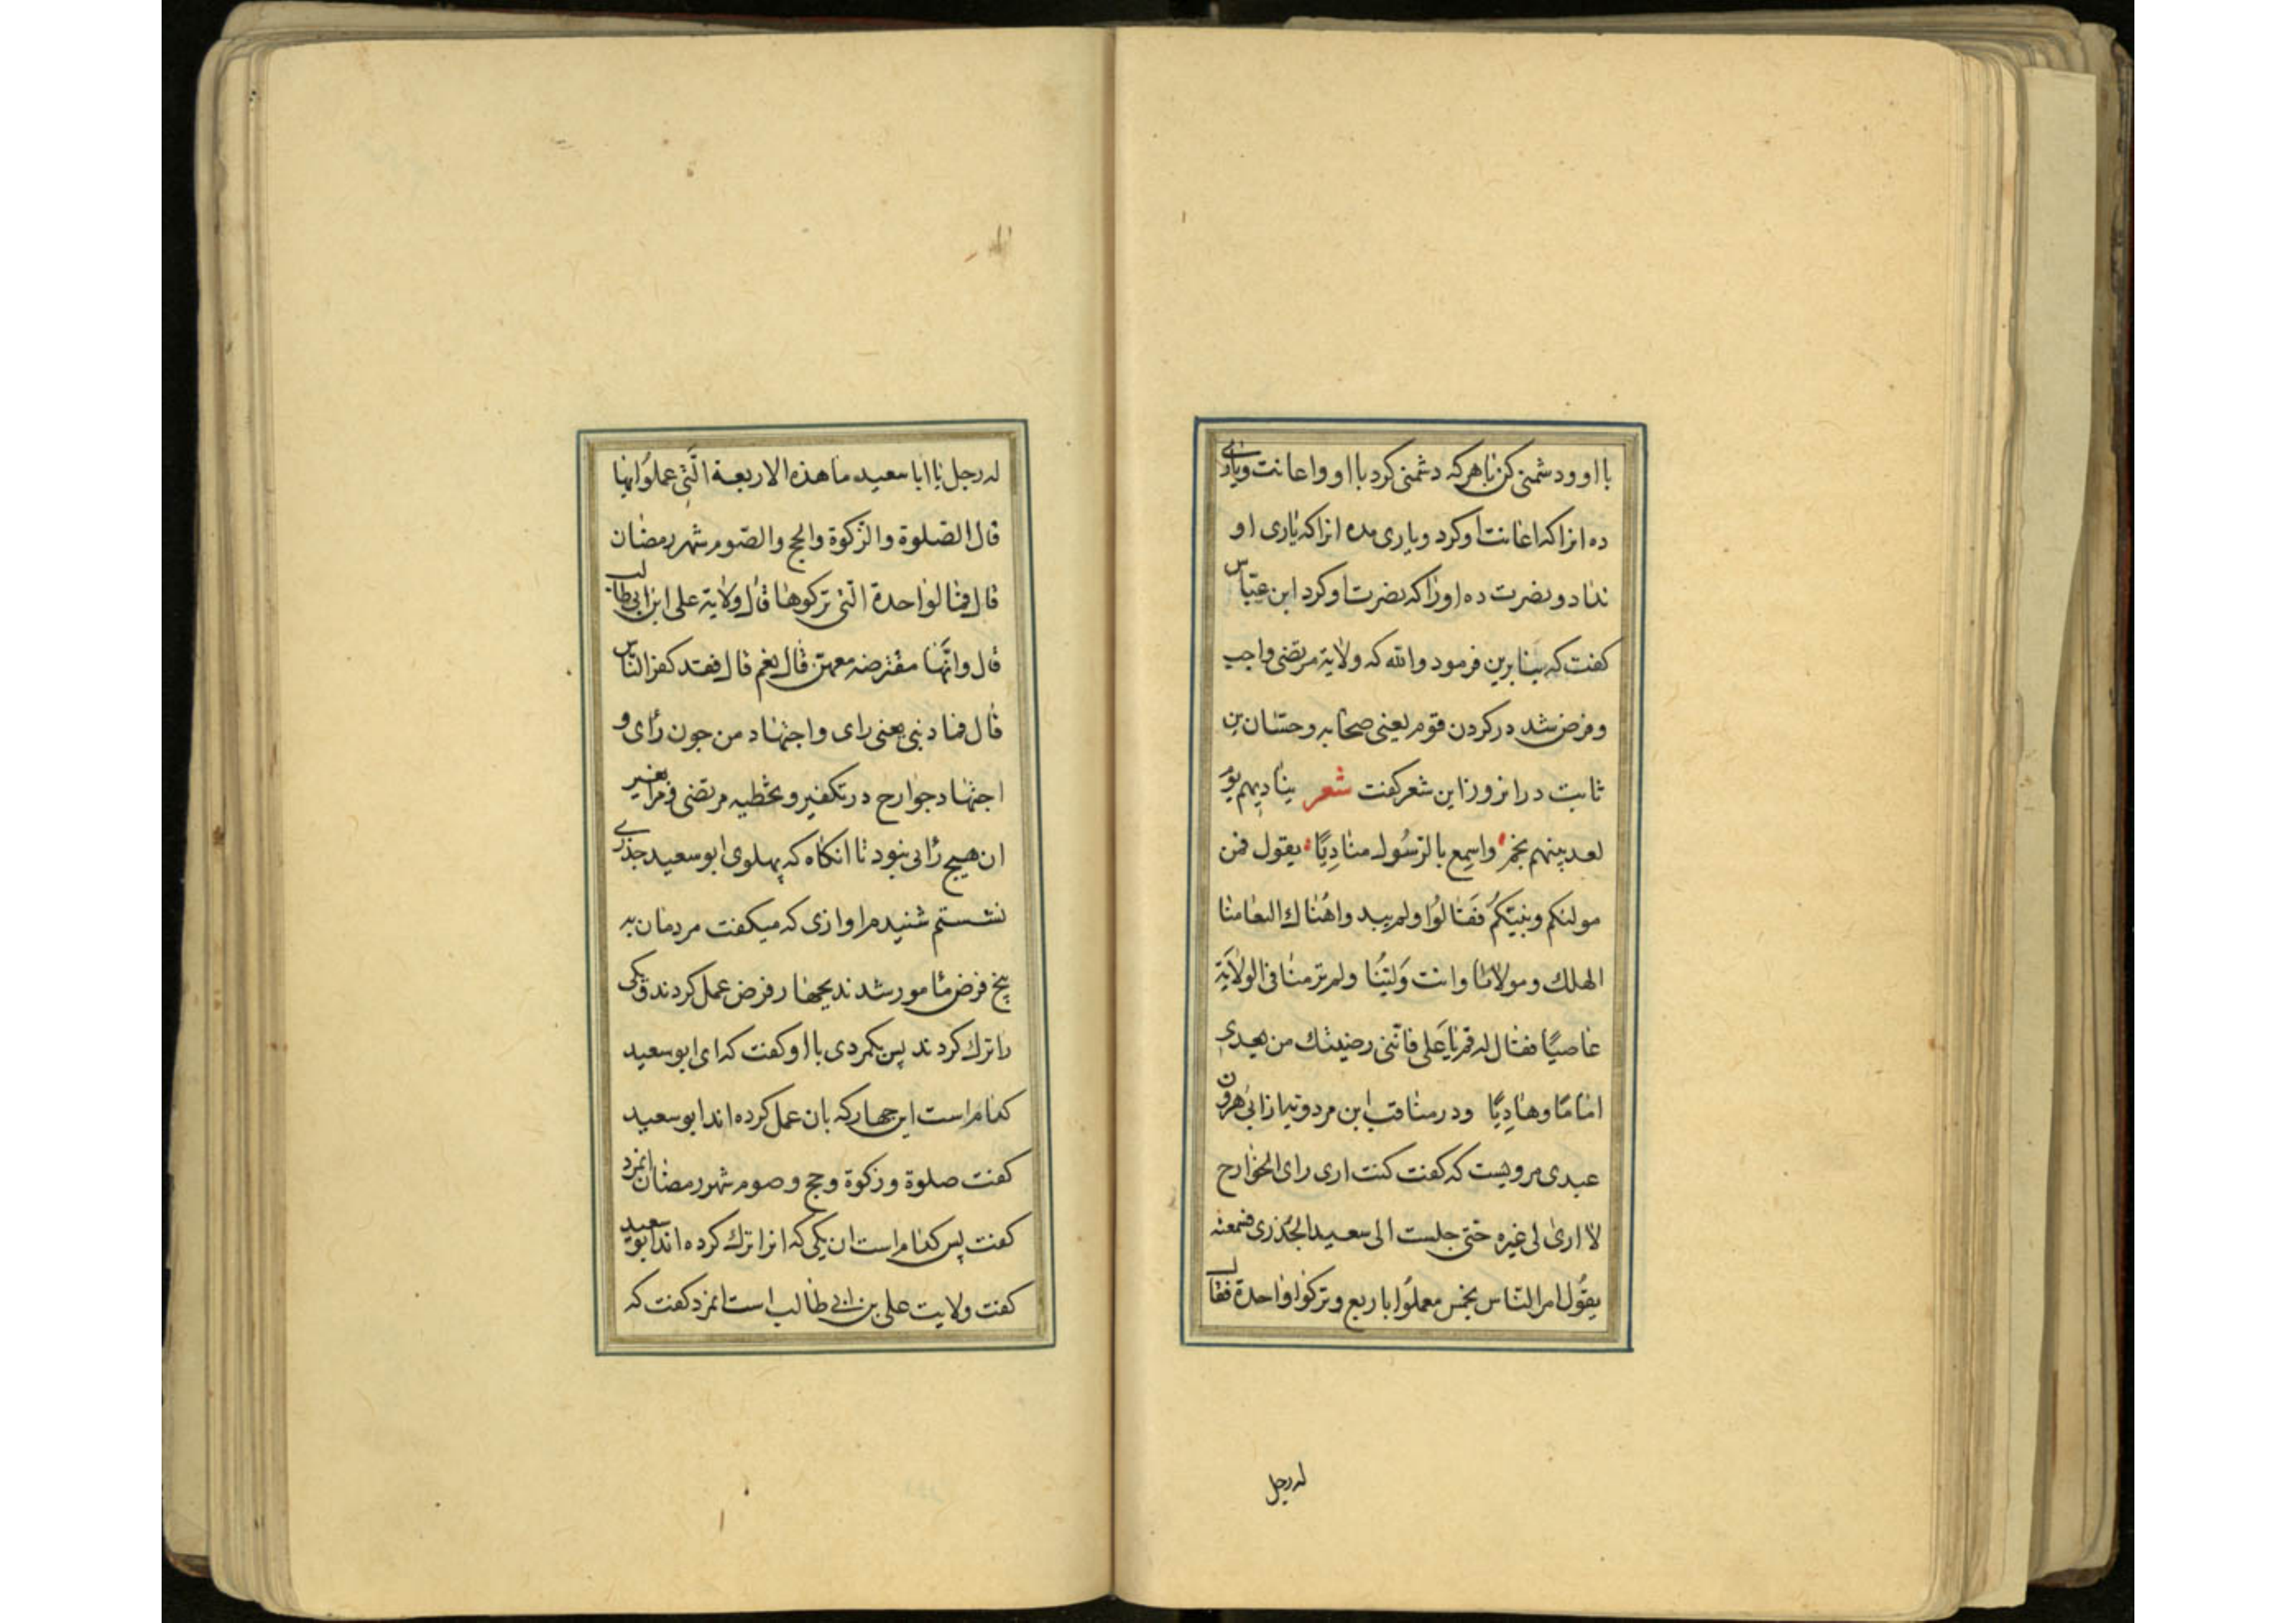 با او و دشمنی کن با هرکه دشمنی کرد با او و اعانت و یاری
ده انرا که اعانت او کرد و یاری مده انرا که یاری او
نداد و نصرت ده او را که نصرت او کرد ابن عبّاس
کفت که بنابرین فرمود والله که ولایة مرتضی واجب
و فرض شد در کردن قوم یعنی صحابه و حسّان بن
ثابت در انروز این شعر کفت شعر ینادیهم یوم
لعد بینهم بخم واسمع بالرسُول منادِیًا یقول فمن
مولیکم و نبیّکُم فَقالوُا ولم یبدواهُناك التعامیا
الهك ومولانا وانت وَلیّنُا ولم تر منا فی الولاَیَة
عاصیًا فقال له قم یا عَلی فانّنی رضیتك من بعدی
امامًا وهادِیًا و در مناقب ابن مردویه از ابی هرون
عبدی مرویست که کفت کنت اری رای الخوارج
لا اری لی غیره حتی جلست الی سعید الجُذری فسمعته
یقوُل امر الناس بخمس فعملوُا باربع وترکوا واحدة فقال
له رجل
له رجل یا ابا سعید ما هذه الاربعة الّتی عملوُا بها
قال الصّلوة والزّکوة والحج والصّوم شهر رمضان
قال فما الواحدة الّتی ترکوها قال ولایة علی ابن ابی طالب
قال وانّها مفترضه معهنّ قال نعم قال فقد کفر النّاس
قال فما ذنبی یعنی رای و اجتهاد من چون رأی و
اجتهاد خوارج در تکفیر و تخطیه مرتضی و مرا غیر
ان هیچ رأئی نبود تا انکاه که پهلوی ابو سعید جذری
نشستم شنیدم اوازی که میکفت مردمان به
پنج فرض مأمور شدند بجهار فرض عمل کردند و یکی
را ترك کردند پس یکمردی با او کفت که ای ابو سعید
کدام است این جهار که بان عمل کرده اند ابو سعید
کفت صلوة و زکوة و حج و صوم شهر رمضان انمرد
کفت پس کدام است ان یکی که انرا ترك کرده اند ابو سعید
کفت ولایت علی بن ابی طالب است انمرد کفت که